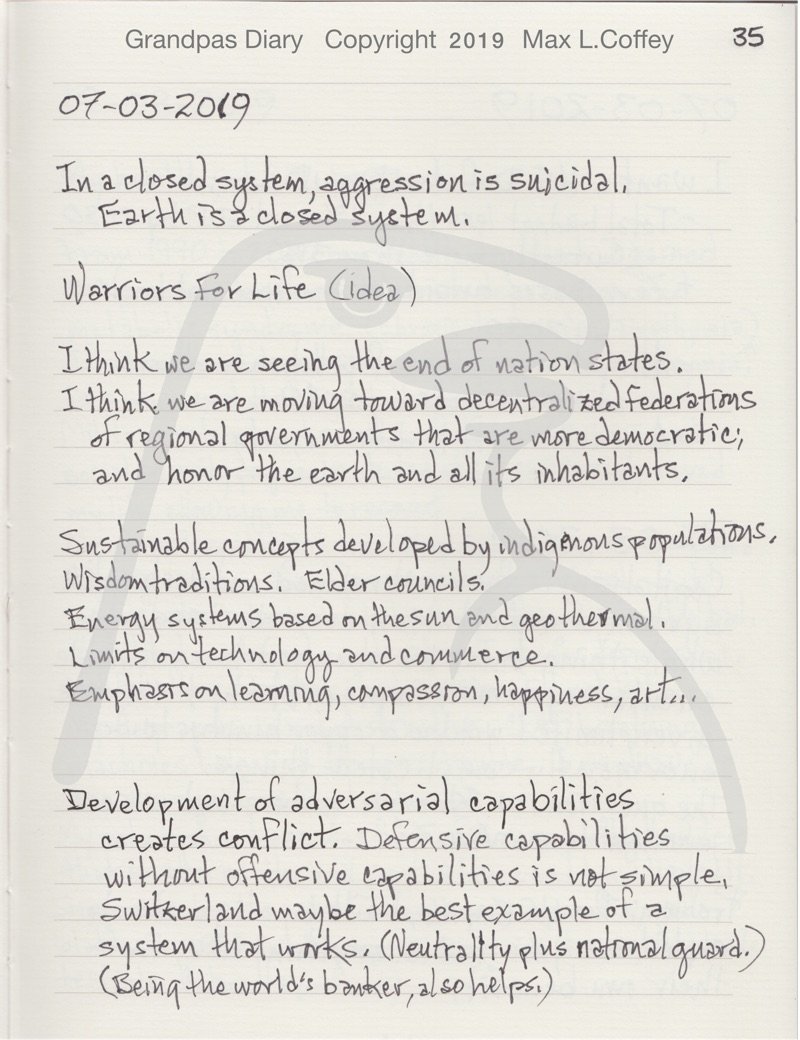 Grandpas Diary Copyright 2019 Max L.Coffey 35
07-03-2019
In a closed system, aggression is suicidal.
Earth is a closed system.
Warriors For Life (idea)
I think we are seeing the end of nation states.
I think we are moving toward decentralized federations
of regional governments that are more democratic;
and honor the earth and all its inhabitants.
Sustainable concepts developed by indigenous populations.
Wisdom traditions. Elder councils.
Energy systems based on the sun and geothermal.
Limits on technology and commerce.
Emphasis on learning, compassion, happiness, art...
Development of adversarial capabilities
creates conflict. Defensive capabilities
without offensive capabilities is not simple.
Switzerland maybe the best example of a
system that works. (Neutrality plus national guard.)
(Being the world's banker, also helps.)